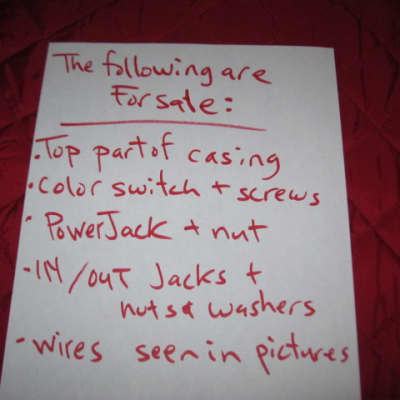 The following are
For sale:
• Top part of casing
• Color switch + screws
• Power Jack + nut
• IN/OUT Jacks +
nuts & washers
• wires seen in pictures